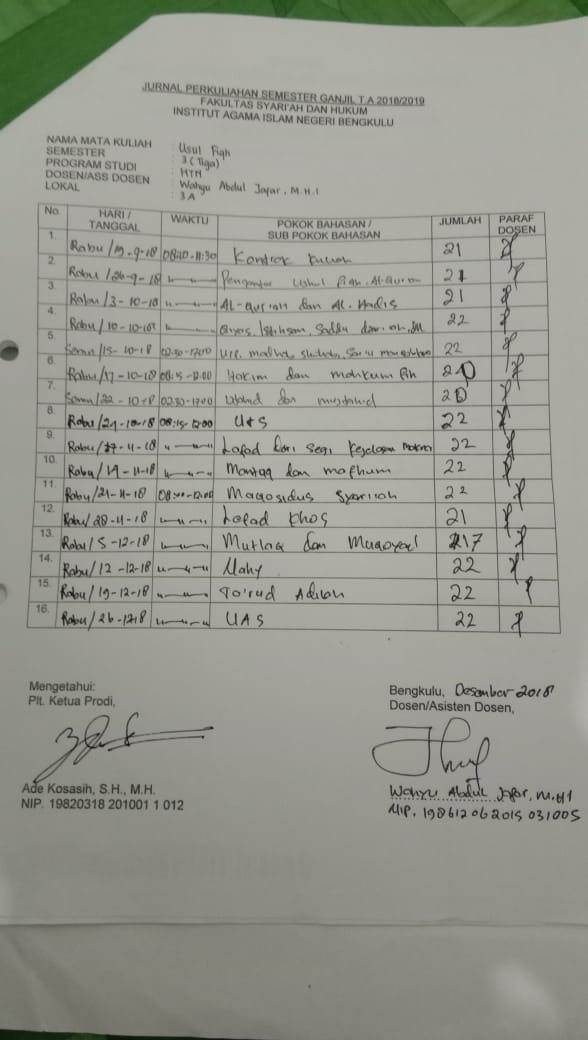 JURNAL PERKULIAHAN SEMESTER GANJIL T.A 2018/2019
FAKULTAS SYARI'AH DAN HUKUM
INSTITUT AGAMA ISLAM NEGERI BENGKULU
NAMA MATA KULIAH : Usul Fiqh
SEMESTER : 3 (Tiga)
PROGRAM STUDI : HTN
DOSEN/ASS DOSEN : Wahyu Abdul Jafar, M.H.I
LOKAL : 3A
No. HARI / TANGGAL WAKTU POKOK BAHASAN / SUB POKOK BAHASAN JUMLAH PARAF DOSEN
1. Rabu/19-9-18 08:40-11:30 Kontrak Kuliah 21
2. Rabu/26-9-18 Pengantar Ushul Fiqh, Al-Quran 21
3. Rabu/3-10-18 AL-qur'an dan AL-Hadis 21
4. Rabu/10-10-18 Qiyas, Istihsan, 22
5. Senin/15-10-18 22
6. Rabu/17-10-18 08:15-12:00 Hakim dan mahkum fih 20
7. Senin/22-10-18 02.30-17.00 Ijtihad dan mujtahid 20
8. Rabu/24-10-18 08:15-12:00 UTS 22
9. Lafad dari segi Kejelasan 22
10. Rabu/14-11-18 Mantuq dan mafhum 22
11. Rabu/21-11-18 08:00-12:00 Maqosidus Syariah 22
12. Rabu/28-11-18 Lafad Khos 21
13. Rabu/5-12-18 Mutlaq dan Muqoyad 17
14. Rabu/12-12-18 Nahy 22
15. Rabu/19-12-18 Ta'rud Adilah 22
16. Rabu/26-12-18 UAS 22
Mengetahui:
Plt. Ketua Prodi,
Ade Kosasih, S.H., M.H.
NIP. 19820318 201001 1 012
Bengkulu, Desember 2018
Dosen/Asisten Dosen,
Wahyu Abdul Jafar, M.HI
NIP. 198612062015 031005